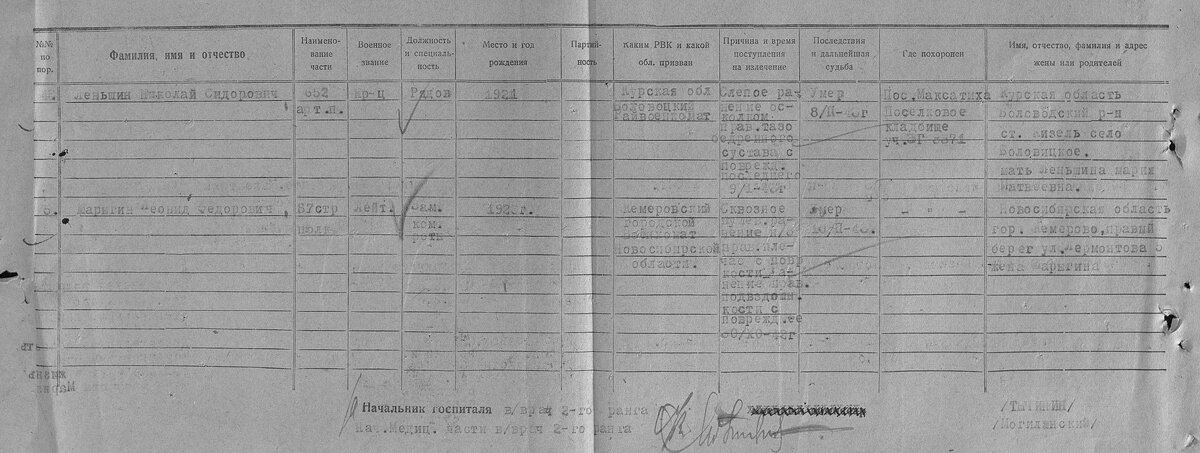 №№ по пор.
Фамилия, имя и отчество
Наимено-
вание
части
Военное
звание
Должность
и специаль-
ность
Место и год
рождения
Партий-
ность
Каким РВК и какой
обл. призван
Причина и время
поступления
на излечение
Последствия
и дальнейшая
судьба
Где похоронен
Имя, отчество, фамилия и адрес
жены или родителей
Леньшин Николай Сидорович
652
арт.п.
кр-ц
Рядов
1921
Курская обл
Райвоенкомат
Слепое ра-
нение ос-
колком
прав.тазо
бедренного
сустава с
поврежд.
последнего
9/1-43г
Умер
8/П-43г
Пос.Максатиха
Поселковое
кладбище
Курская область
ст. Кизель село
Боловицкое.
мать Леньшина Мария
Матвеевна.
Шарыгин Леонид Федорович
57стр
полк
Лейт.
Зам.
ком.
роты
Кемеровский
городской
военкомат
Новосибирской
области.
Сквозное
прав.пле-
ча с повр
кости
нение прав.
подвздошн.
кости с
поврежд.ее
Умер
— " —
Новосибирская область
гор. Кемерово, правый
берег ул.Лермонтова 5
жена Шарыгина
Начальник госпиталя в/врач 2-го ранга
/Тытинин/
Нач.Медиц. части в/врач 2-го ранга
/Могилянский/